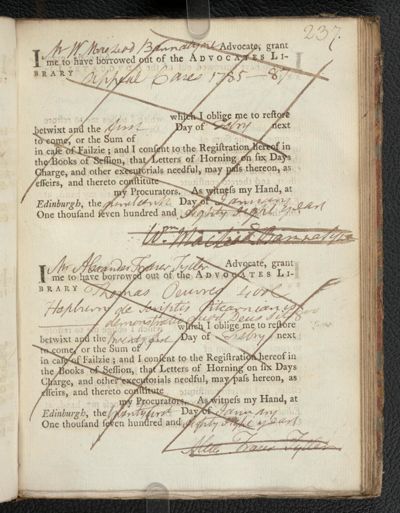 237.
I Mr W. Macleod Bannatyne Advocate, grant
me to have borrowed out of the ADVOCATES LI-
BRARY Appeal Cases 1785–87
which I oblige me to restore
betwixt and the first Day of Febry next
to come, or the Sum of
in case of Failzie; and I consent to the Registration hereof in
the Books of Session, that Letters of Horning on six Days
Charge, and other executorials needful, may pass hereon, as
effeirs, and thereto constitute
my Procurators. As witness my Hand, at
Edinburgh, the Day of January
One thousand seven hundred and eighty eight years
Wm Macleod Bannatyne
I Mr Alexander Fraser Tytler Advocate, grant
me to have borrowed out of the ADVOCATES LI-
BRARY Thomas Oeuvres
Hepburn de scriptis Pitcarnianis
demonstratio quod Deus sit
which I oblige me to restore
betwixt and the Day of Febry next
to come, or the Sum of
in case of Failzie; and I consent to the Registration hereof in
the Books of Session, that Letters of Horning on six Days
Charge, and other executorials needful, may pass hereon, as
effeirs, and thereto constitute
my Procurators. As witness my Hand, at
Edinburgh, the twenty first Day of January
One thousand seven hundred and eighty eight years
Alex Fraser Tytler